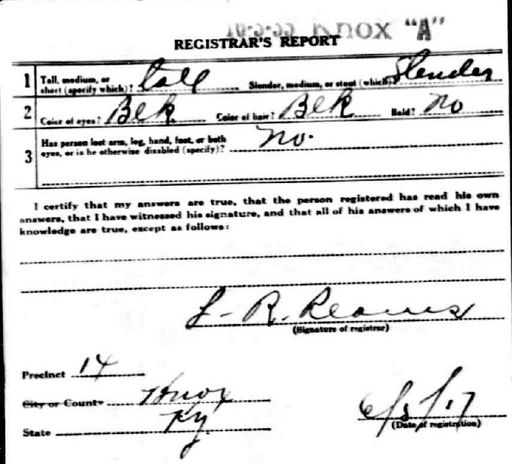 Knox "A"
REGISTRAR'S REPORT
1 Tall, medium, or short (specify which)? Tall Slender, medium, or stout (which)? Slender
2 Color of eyes? Blk Color of hair? Blk Bald? no
3 Has person lost arm, leg, hand, foot, or both eyes, or is he otherwise disabled (specify)? no.
I certify that my answers are true, that the person registered has read his own
answers, that I have witnessed his signature, and that all of his answers of which I have
knowledge are true, except as follows:
(Signature of registrar)
Precinct 14
City or County Knox
State Ky
6/5/17
(Date of registration)